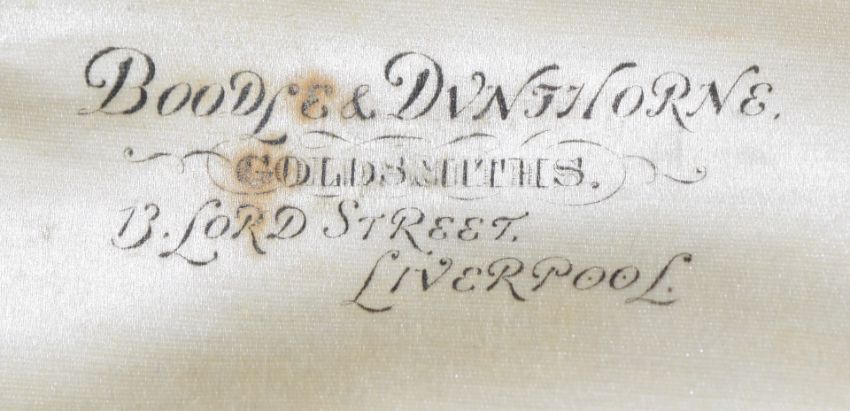 BOODLE & DVNTHORNE.
GOLDSMITHS.
13. LORD STREET.
LIVERPOOL.